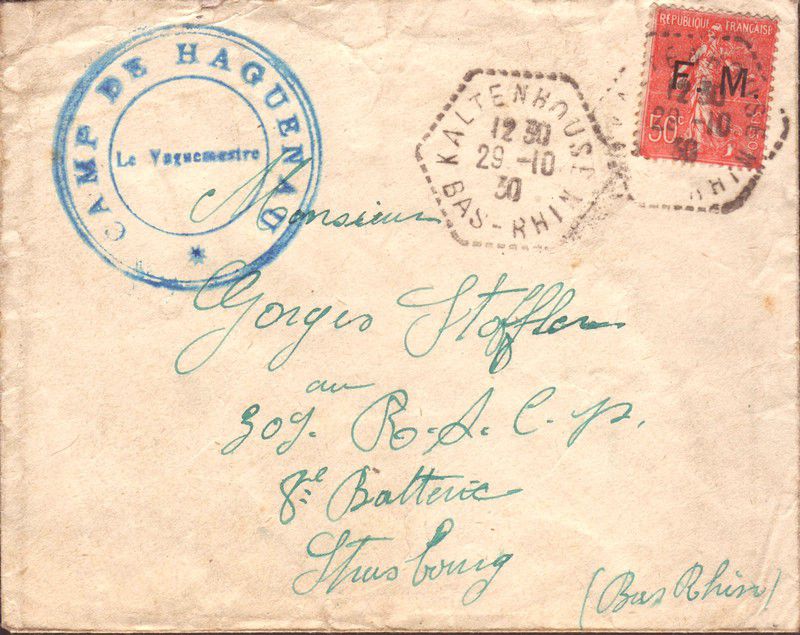 CAMP DE HAGUENAU
Le Vaguemestre
KALTENHOUSE
12 30
29 -10
30
BAS-RHIN
RÉPUBLIQUE FRANÇAISE
F. M.
50c
12 30
29 -10
30
RHIN
Monsieur
Gorges Stoffler
au
309. R. A. C. p.
8e Batterie
Strasbourg
(Bas Rhin)